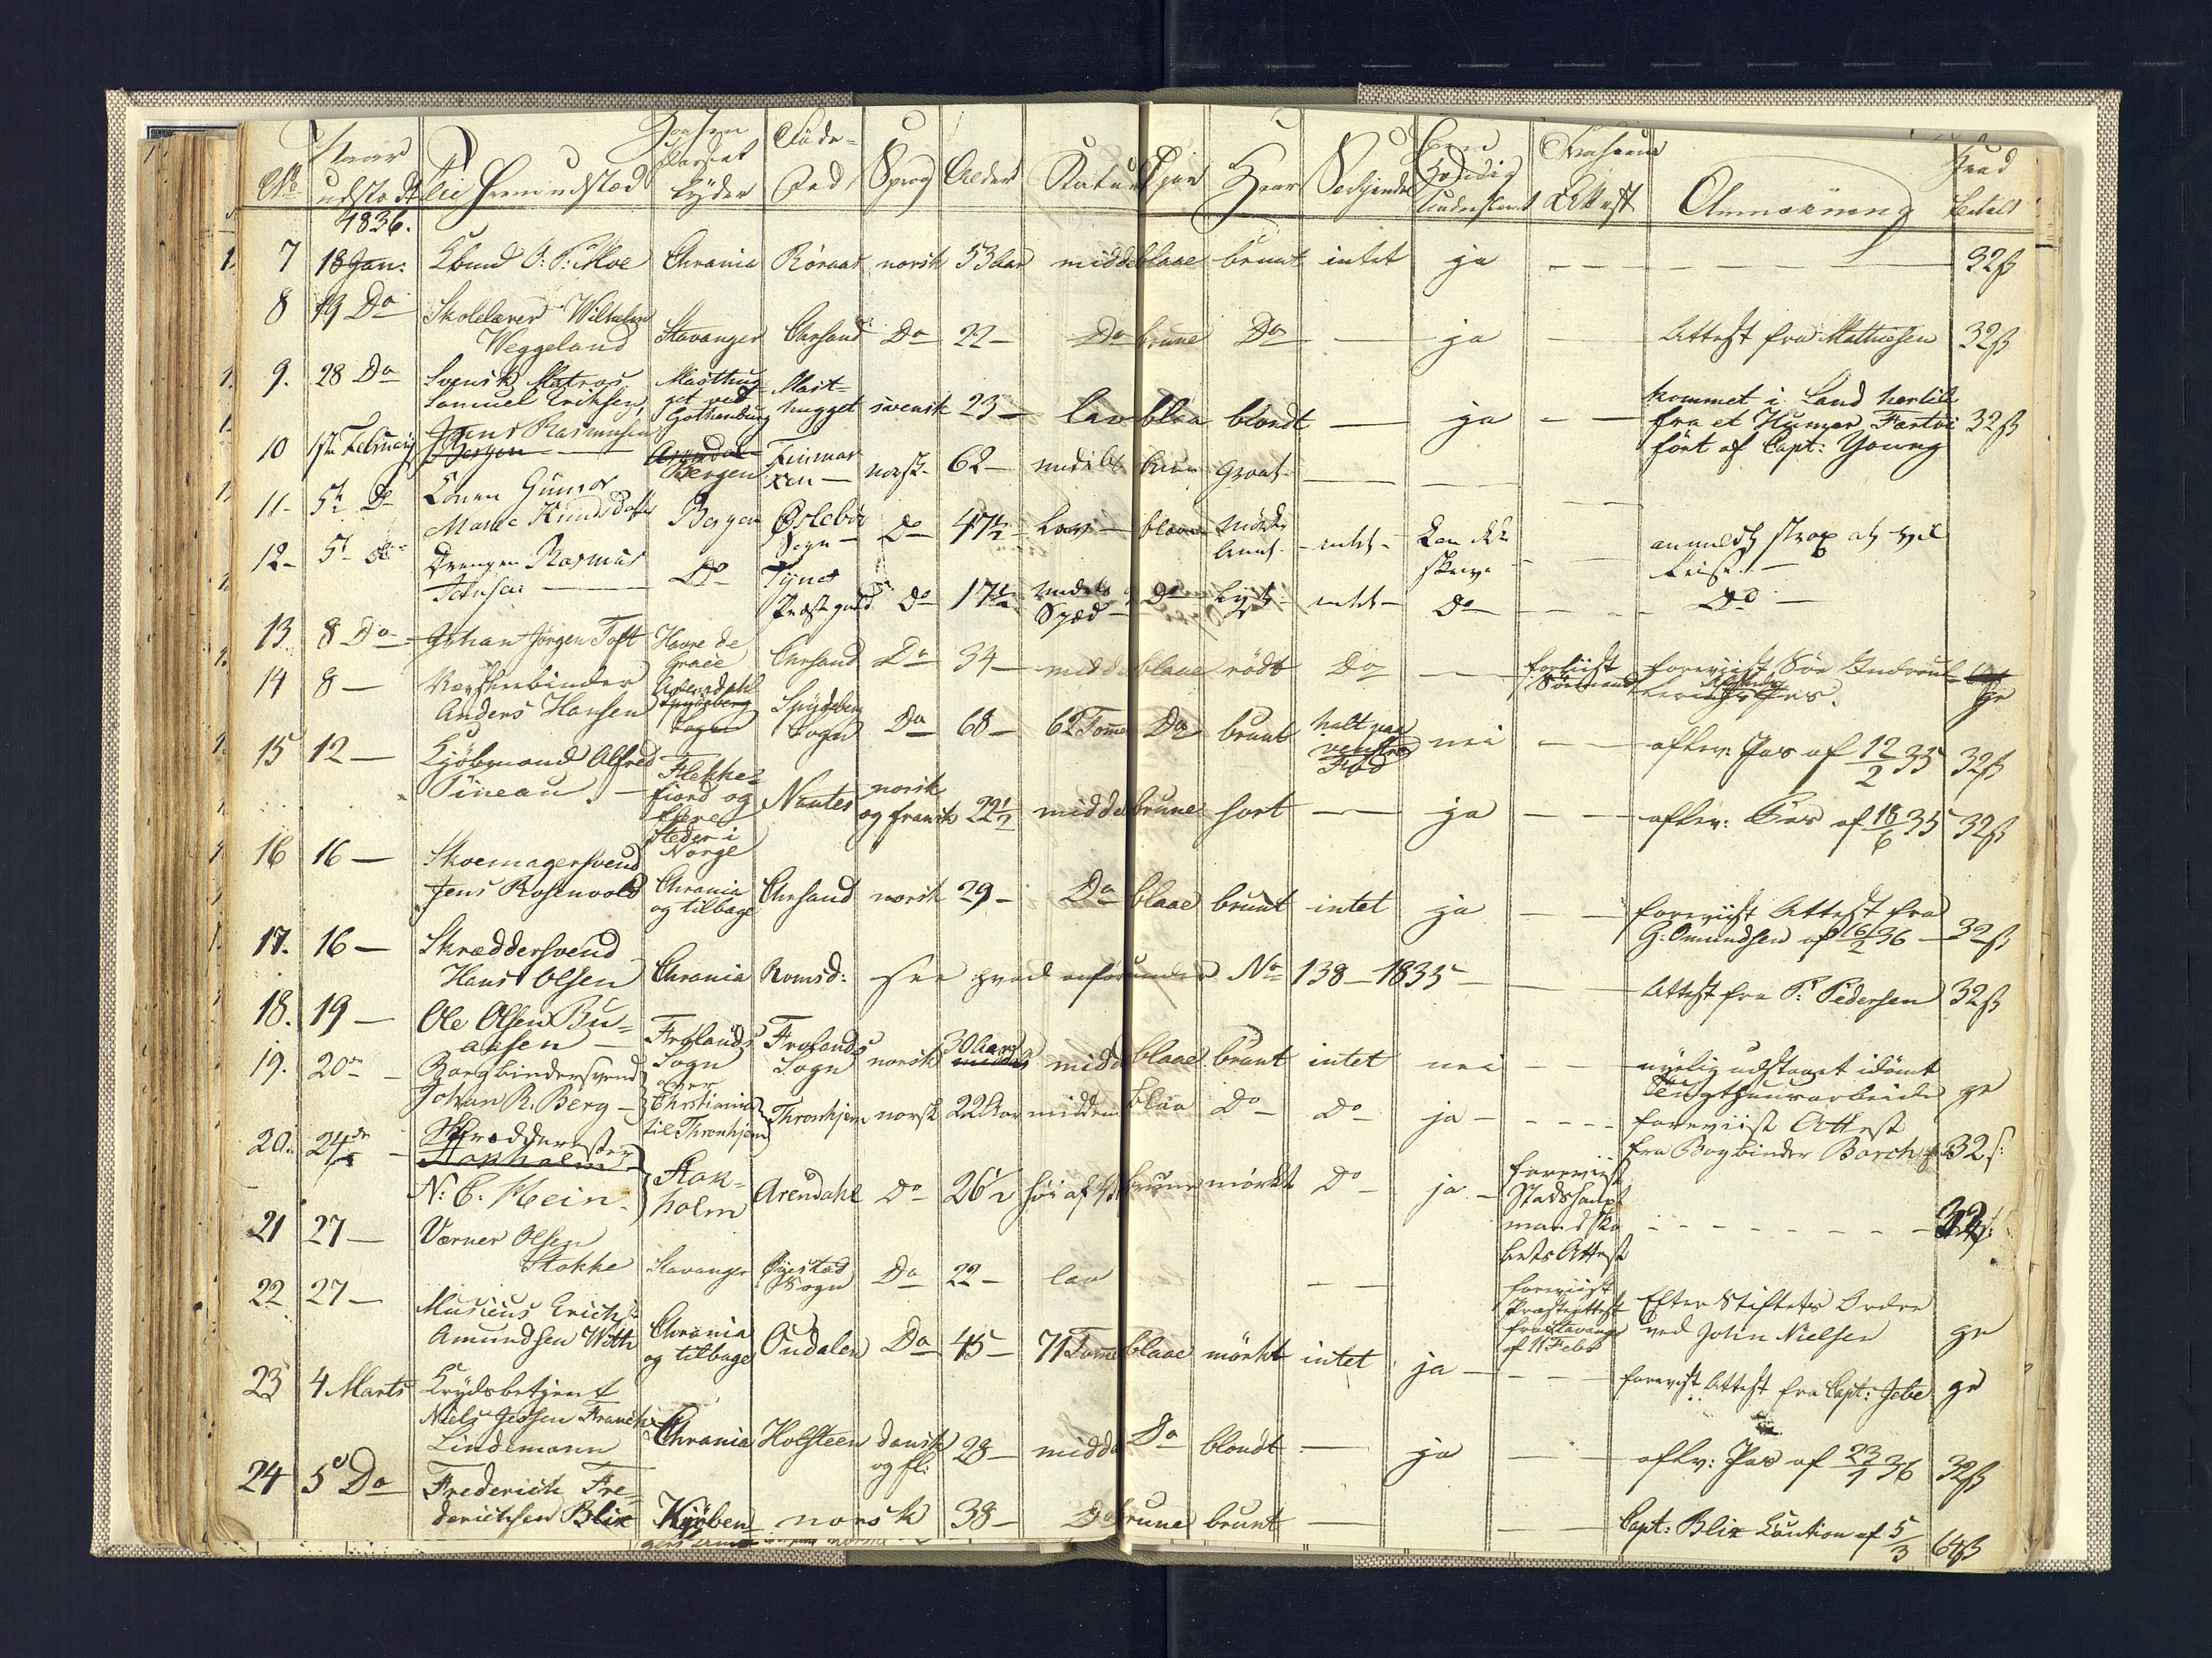 No Naar udstædt Til hvem udstæd Hvorhen Passet lyder Føde-Sted Sprog Alder Statur Øjne Haar Særkjende Egenhændig Underskrivt Attest Anmærkning Hvad betalt
1836.
7 18 Jan: O: P: Moe Chrania Røraas norsk 53 aar middel blaae brunt intet ja — — 32ß
8 19 Do Skolelærer Wilhelm
Weggeland Stavanger Chrsand Do 22 — Do brune Do — ja — Attest fra Mathiesen 32ß
9. 28 Do Svensk Matros
Samuel Eriksen, Masthugget ved Gothenburg Masthugget svensk 23 — lav blaa blondt — ja — — kommet i Land hertil
fra et Hummer Fartøi 32ß
ført af Capt: Young
10 1ste Februar Jens Rasmusen
Bergen Arendal Bergen Finmarken — norsk 62 — middel brun graat — —
11 — 5te Do Konen Gunror
Marie Knudsdatter Bergen Øslebøe Sogn — Do 47½ Lav — blaae mørkebrunt — intet — kan ikke skrive — anmeldt strax at vil reise. —
12 — 5te Do Drengen Rasmus
Jansen — Do Tynes Præstegield Do 17½ middel og Spæd — Do Lyst — intet — Do — — — Do —
13 8 Do Johan Jørgen Toft Havre de Grace Chrsand Do 34 — middel blaae rødt Do — foreviist Sørensen foreviist Søe Indroul-
lerings Pas. gr
14 8 — Væyskeebinder
Anders Hansen Arendahl Spydeberg Sogn Spydeberg Sogn Do 68 — 62 Tomme Do brunt halt paa venstre Fod nei — — aflev: Pas af 12/2 35 32ß
15 12 — Kjøbmand Alfred
Pineau. — Flekkefiord og flere Steder i Norge Nantes norsk og fransk 22½ middel brune sort — ja — — aflev: Pas af 18/6 35 32ß
16 16 — Skoemagersvend
Jens Rosenvold Chrania og tilbage Chrsand norsk 29 — Do blaae brunt intet ja — — foreviist Attest fra
G: Omundsen af 16/2 36 — 32ß
17. 16 — Skræddersvend
Hans Olsen Chrania Romsd: see hvad anført under No 138 — 1835 — — — Attest fra P: Pedersen 32ß
18. 19 — Ole Olsen Bu-
aasen — Frolands Sogn Frolands Sogn norsk 30 aar middel blaae brunt intet nei — — nyelig udstaaet idømt
Tugthuusarbeide gr
19. 20de — Bogbindersvend
Johan R. Berg — over Christiania til Thronhjem Thronhjem norsk 22 Aar middem blaa Do — Do ja — — — — foreviist Attest
fra Bogbinder Borch 32 s:
20. 24de — Skrædder
Stokholm
N: C: Mein. Stokholm Arendahl Do 26½ høi af brune mørkt Do — ja — foreviist Stadshauptmandskabets Attest — — — 32ß:
21 27 — Værner Olsen
Stakke Stavanger Øiestad Sogn Do 22 — lav — — foreviist Præsteattest fra Stavanger af 11 Febr Efter Stiftets Ordre
ved John Nielsen gr
22 27 — Musicus Erich
Amundsen Woth Chrania og tilbage Oudalen Do 45 — 71 Tomme blaae mørkt intet ja — — — forevist Attest fra Capt: Jebe gr
23 4 Marts Krydsbetjent
Niels Jessen Franch
Lindemann Chrania Holsteen dansk og fl: 28 — middel Do blondt — ja — — aflev: Pas af 23/1 36 32ß
24 5 Do Frederich Fre-
derichsen Blix Kjøben- norsk 38 — Do brune brunt — — — Capt: Blix Caution af 5/3 64ß